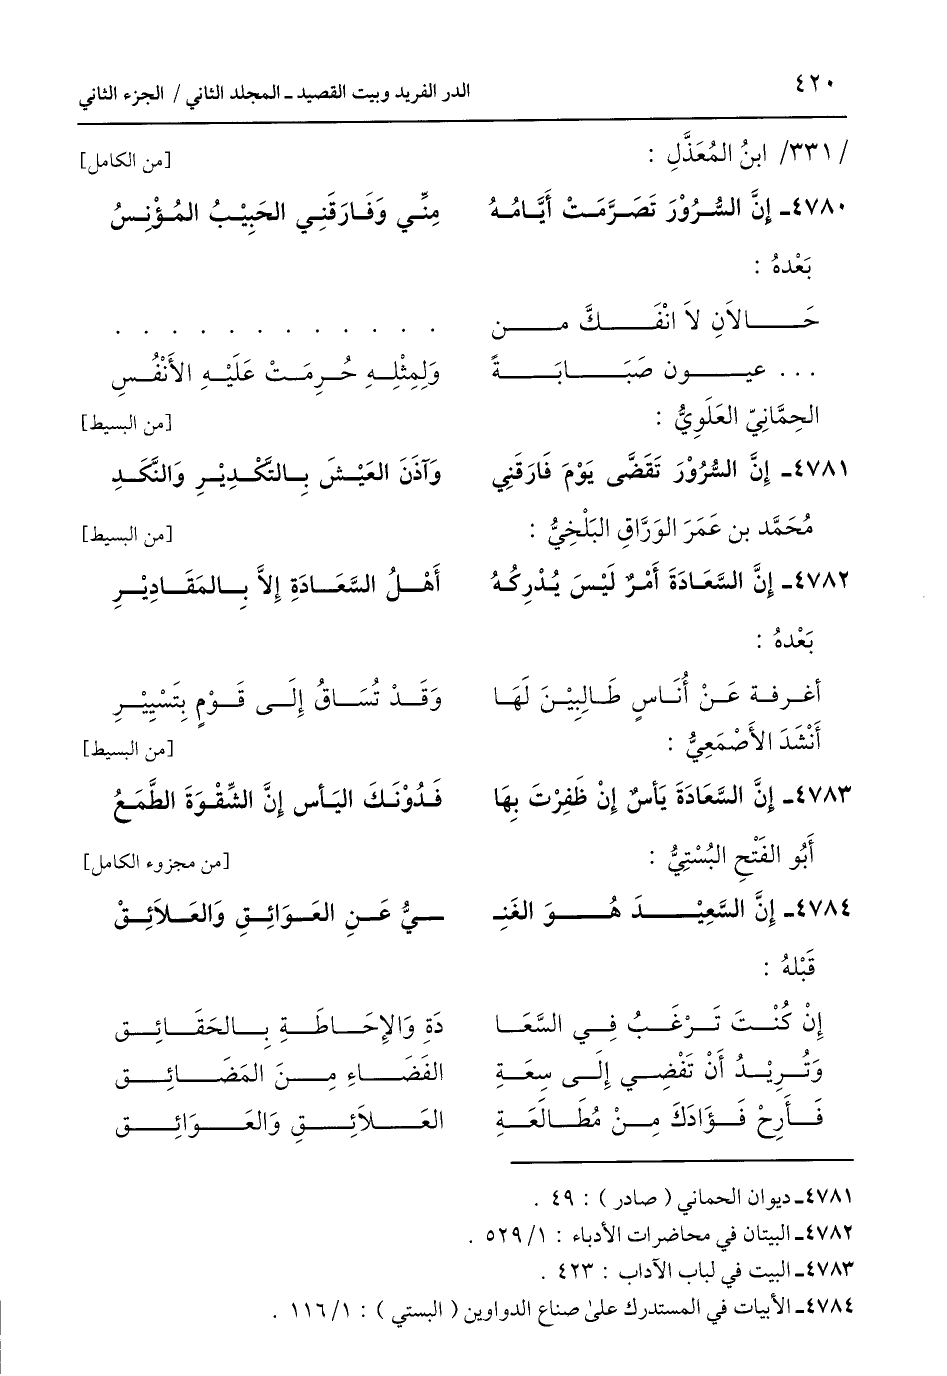 ٤٢٠ الدر الفريد وبيت القصيد ـ المجلد الثاني / الجزء الثاني
/٣٣١/ ابنُ المُعَذَّلِ : [من الكامل]
٤٧٨٠ـ إِنَّ السُّرُوْرَ تَصَرَّمَتْ أَيَّامُهُ مِنِّي وَفَارَقَنِي الحَبِيْبُ المُؤْنِسُ
بَعْدهُ :
حَالاَنِ لاَ انْفَكَّ من . . . . . . . . . . . .
... عيون صَبَابَةً وَلِمِثْلِهِ حُرِمَتْ عَلَيْهِ الأَنْفُسِ
الحِمَّانِيّ العَلَوِيُّ : [من البسيط]
٤٧٨١ـ إِنَّ السُّرُوْرَ تَقَضَّى يَوْمَ فَارَقَنِي وَآذَنَ العَيْشَ بِالتَّكْدِيْرِ وَالنَّكَدِ
مُحَمَّد بن عَمَرَ الوَرَّاقِ البَلْخِيُّ : [من البسيط]
٤٧٨٢ـ إِنَّ السَّعَادَةَ أَمْرٌ لَيْسَ يُدْرِكهُ أَهْلُ السَّعَادَةِ إِلاَّ بِالمَقَادِيْرِ
بَعْدهُ :
أغرفة عَنْ أُنَاسٍ طَالِبِيْنَ لَهَا وَقَدْ تُسَاقُ إِلَى قَوْمٍ بِتَسْيِيْرِ
أَنْشَدَ الأَصْمَعِيُّ : [من البسيط]
٤٧٨٣ـ إِنَّ السَّعَادَةَ يَأسٌ إِنْ ظَفِرْتَ بِهَا فَدُوْنَكَ اليَأس إِنَّ الشِّقْوَةَ الطَّمَعُ
أَبُو الفَتْحِ البُسْتِيُّ : [من مجزوء الكامل]
٤٧٨٤ـ إِنَّ السَّعِيْدَ هُوَ الغَنِـ ـيُّ عَنِ العَوَائِقِ وَالعَلاَئِقْ
قَبْلهُ :
إِنْ كُنْتَ تَرْغَبُ فِي السَّعَا دَةِ وَالإِحَاطَةِ بِالحَقَائِقِ
وَتُرِيْدُ أَنْ تَفْضِي إِلَى سِعَةِ الفَضَاءِ مِنَ المَضَائِقِ
فَأَرِحْ فَؤَادَكَ مِنْ مُطَالَعَةِ العَلاَئِقِ وَالعَوَائِقِ
٤٧٨١ـ ديوان الحماني ( صادر ) : ٤٩ .
٤٧٨٢ـ البيتان في محاضرات الأدباء : ١/ ٥٢٩ .
٤٧٨٣ـ البيت في لباب الآداب : ٤٢٣ .
٤٧٨٤ـ الأبيات في المستدرك على صناع الدواوين ( البستي ) : ١/ ١١٦ .